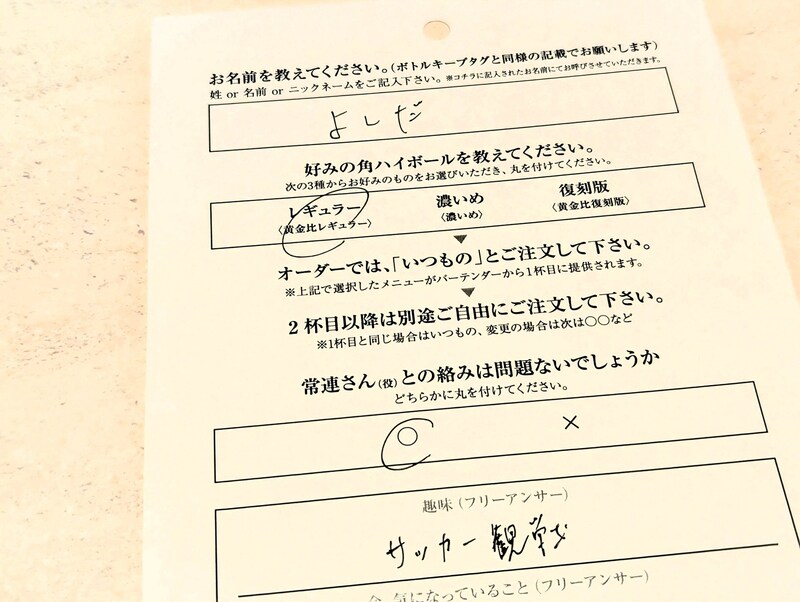 お名前を教えてください。(ボトルキープタグと同様の記載でお願いします)
姓 or 名前 or ニックネームをご記入下さい。※コチラに記入されたお名前にてお呼びさせていただきます。
よしだ
好みの角ハイボールを教えてください。
次の3種からお好みのものをお選びいただき、丸を付けてください。
レギュラー 濃いめ 復刻版
〈黄金比レギュラー〉 〈濃いめ〉 〈黄金比復刻版〉
▼
オーダーでは、「いつもの」とご注文して下さい。
※上記で選択したメニューがバーテンダーから1杯目に提供されます。
▼
2杯目以降は別途ご自由にご注文して下さい。
※1杯目と同じ場合はいつもの、変更の場合は次は〇〇など
常連さん(役)との絡みは問題ないでしょうか
どちらかに丸を付けてください。
○ ×
趣味(フリーアンサー)
サッカー観戦
今、気になっていること(フリーアンサー)